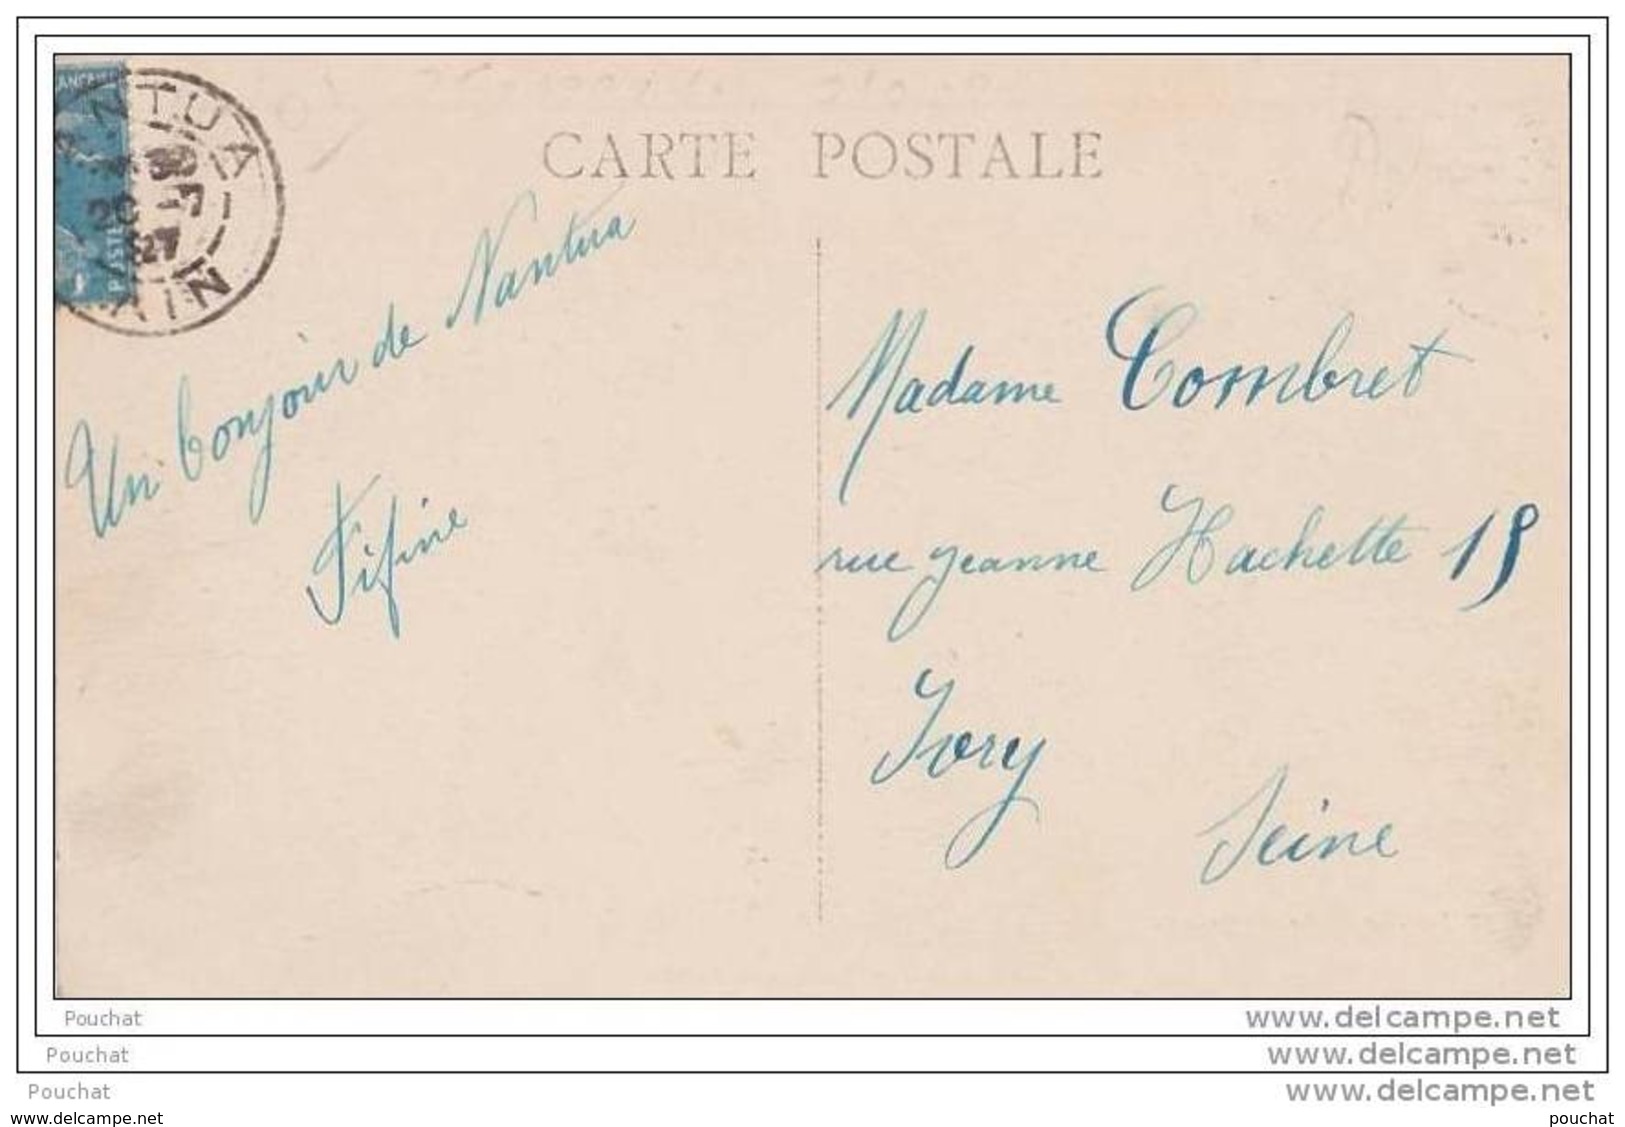 CARTE POSTALE
ANTUA
20 -7
27
AIN
POSTES
Un bonjour de Nantua
Fifine
Madame Combret
rue Jeanne Hachette 19
Ivry
Seine
Pouchat
www.delcampe.net
Pouchat
www.delcampe.net
Pouchat
www.delcampe.net
www.delcampe.net
pouchat